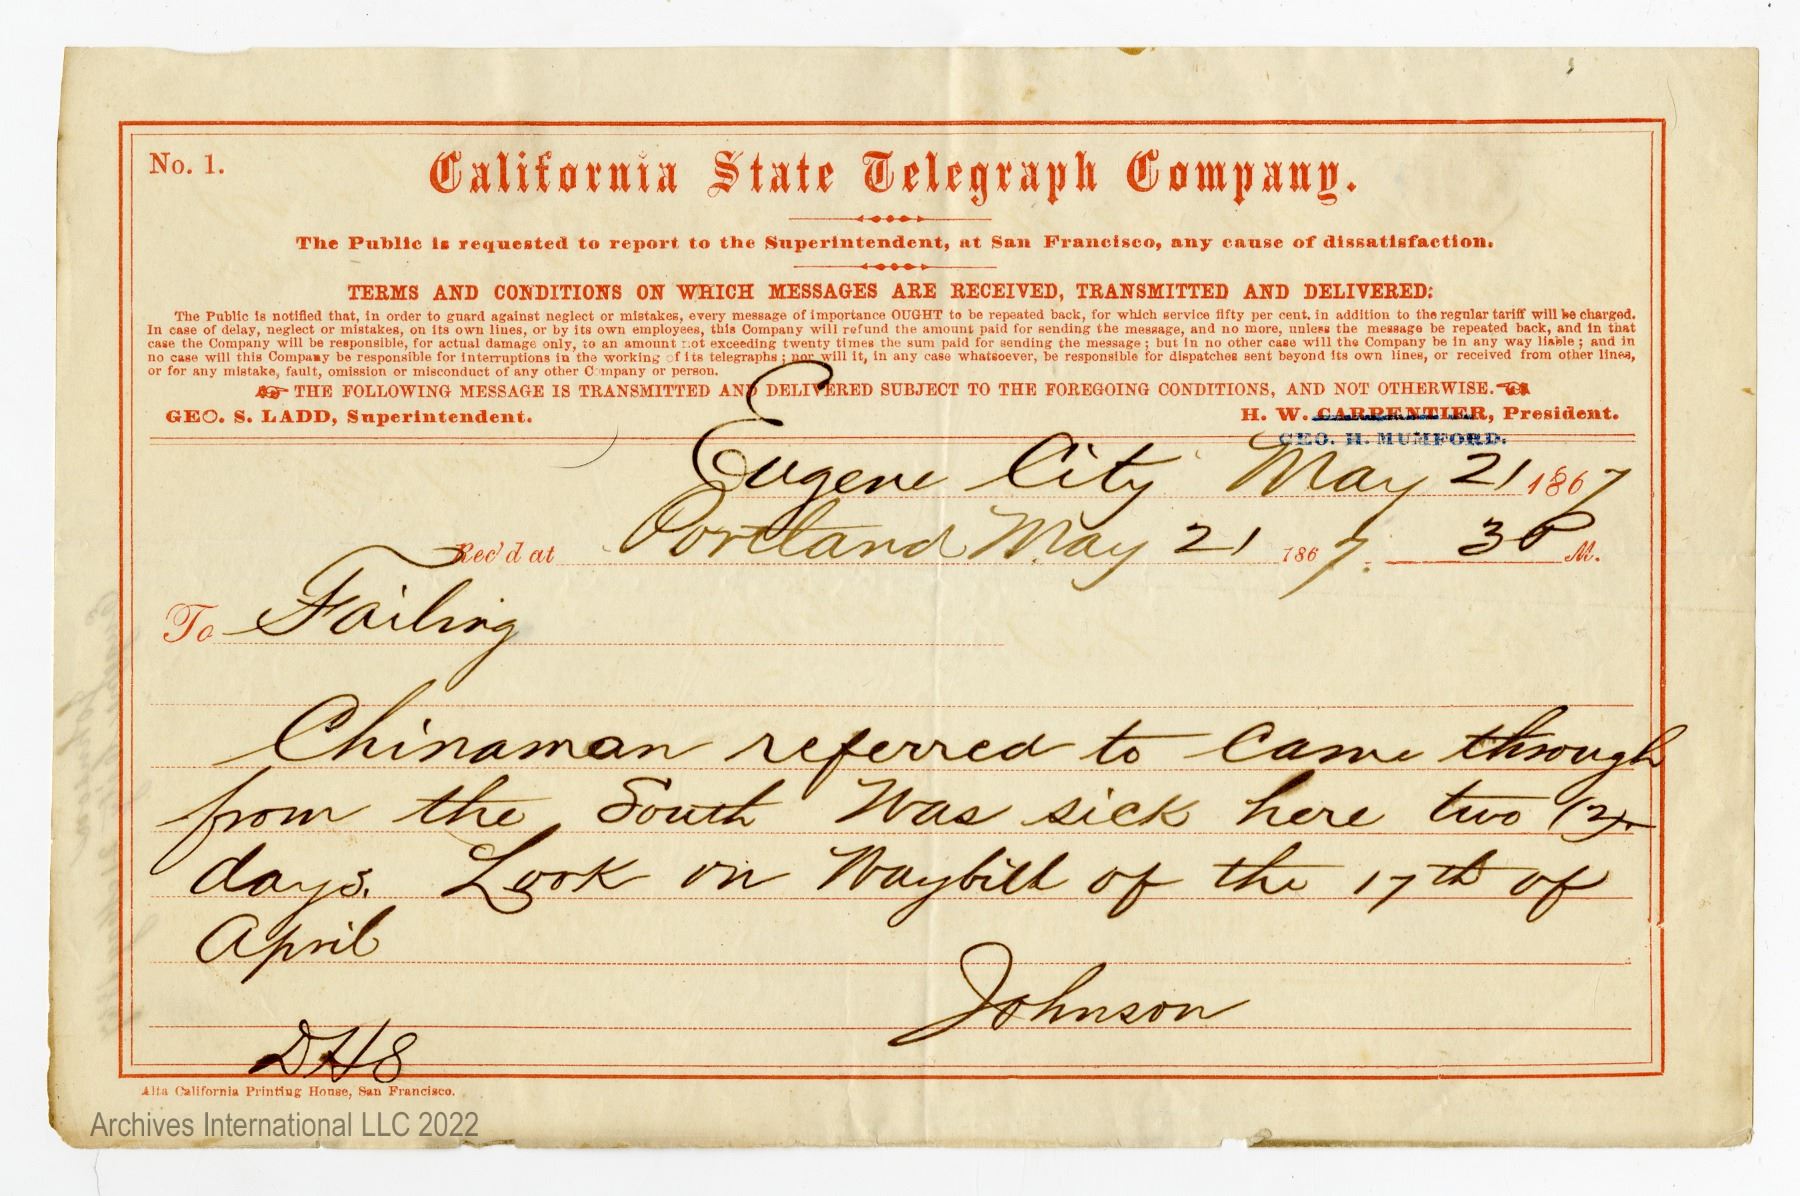 No. 1.
California State Telegraph Company.
The Public is requested to report to the Superintendent, at San Francisco, any cause of dissatisfaction.
TERMS AND CONDITIONS ON WHICH MESSAGES ARE RECEIVED, TRANSMITTED AND DELIVERED:
The Public is notified that, in order to guard against neglect or mistakes, every message of importance OUGHT to be repeated back, for which service fifty per cent. in addition to the regular tariff will be charged.
In case of delay, neglect or mistakes, on its own lines, or by its own employees, this Company will refund the amount paid for sending the message, and no more, unless the message be repeated back, and in that
case the Company will be responsible, for actual damage only, to an amount not exceeding twenty times the sum paid for sending the message; but in no other case will the Company be in any way liable; and in
no case will this Company be responsible for interruptions in the working of its telegraphs; nor will it, in any case whatsoever, be responsible for dispatches sent beyond its own lines, or received from other lines,
or for any mistake, fault, omission or misconduct of any other Company or person.
THE FOLLOWING MESSAGE IS TRANSMITTED AND DELIVERED SUBJECT TO THE FOREGOING CONDITIONS, AND NOT OTHERWISE.
GEO. S. LADD, Superintendent. H. W. CARPENTIER, President.
GEO. H. MUMFORD.
Eugene City May 21 1867
Rec'd at Portland May 21 1867. 3 P M.
To Failing
Chinaman referred to Came through
from the South Was sick here two (2)
days. Look on Waybill of the 17th of
April
Johnson
DH8
Alta California Printing House, San Francisco.
Archives International LLC 2022